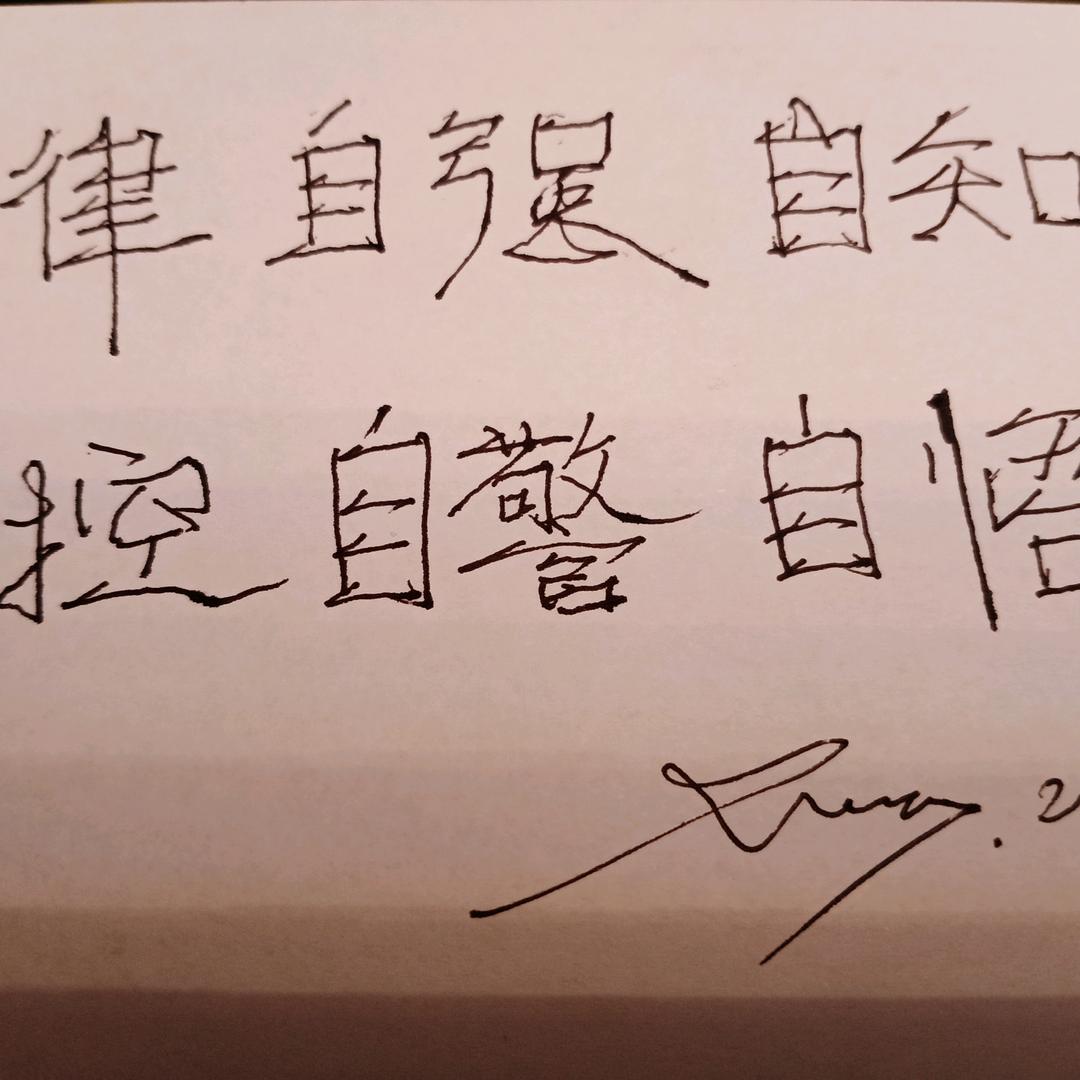 律 自强 自知
控 自警 自悟